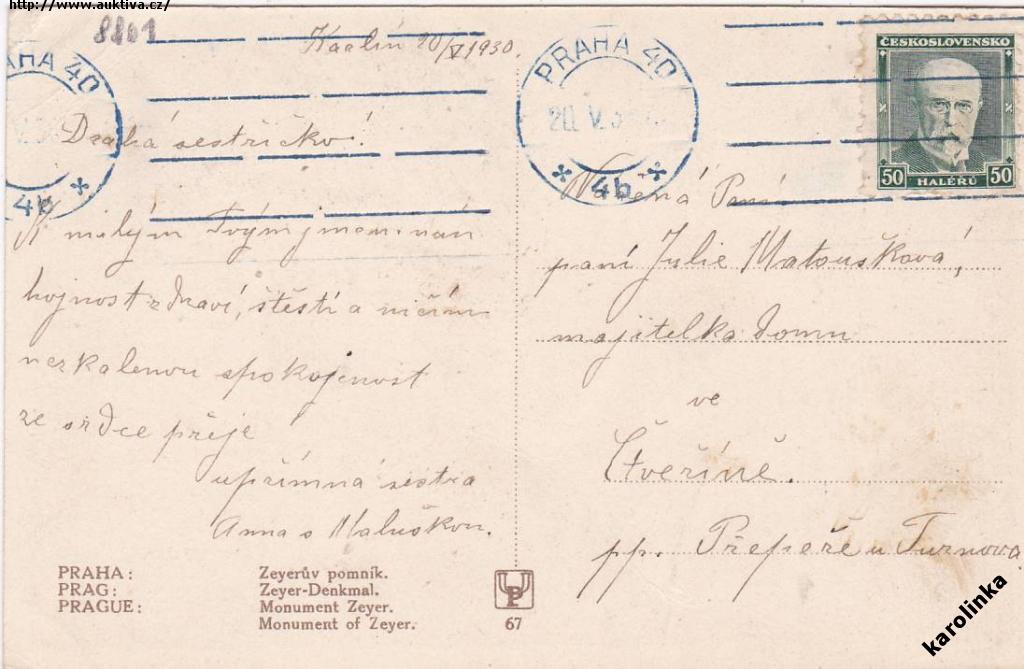 http://www.auktiva.cz/
8801
Karlín 20/V 1930.
PRAHA 40
4b
PRAHA 40
20. V. 3
4b
ČESKOSLOVENSKO
50 HALÉŘŮ 50
Drahá sestřičko!
K milým Tvým jmeninám
hojnost zdraví, štěstí a ničím
nezkalenou spokojenost
ze srdce přeje
upřímná sestra
Anna s Maluškou.
Vážená Paní
paní Julie Matoušková,
majitelka domu
ve
Čtveříně.
pp. Přepeře u Turnova
PRAHA: Zeyerův pomník.
PRAG: Zeyer-Denkmal.
PRAGUE: Monument Zeyer.
Monument of Zeyer.
UP
67
karolinka